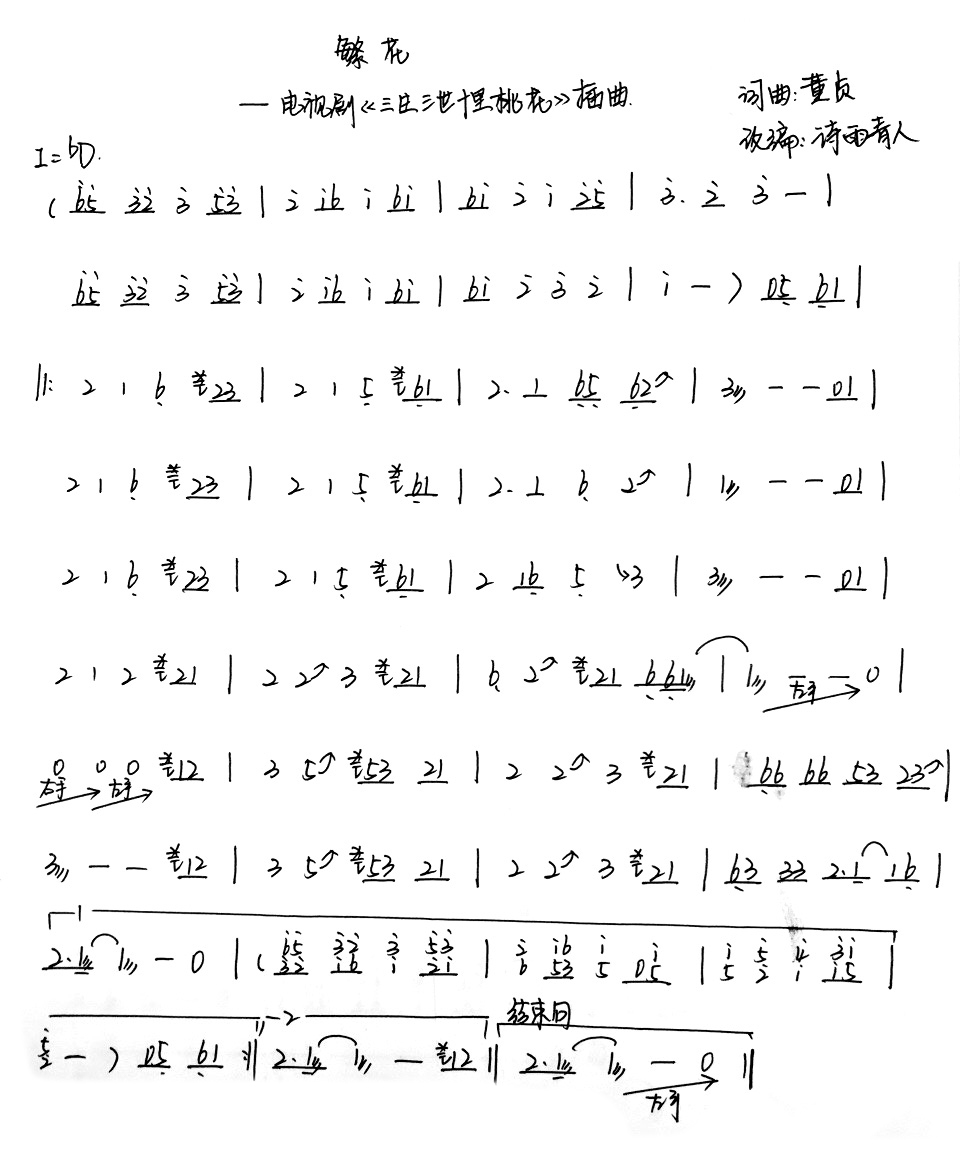 繁花
—电视剧《三生三世十里桃花》插曲.
词曲:董贞
改编:诗雨青人
1=bD.
( 65 32 3 53 | 2 16 1 61 | 61 2 1 25 | 3. 2 3 — |
65 32 3 53 | 2 16 1 61 | 61 2 3 2 | 1 — ) 05 61 |
‖: 2 1 6 23 | 2 1 5 61 | 2. 1 65 62 | 3 — — 01 |
2 1 6 23 | 2 1 5 61 | 2. 1 6 2 | 1 — — 01 |
2 1 6 23 | 2 1 5 61 | 2 16 5 3 | 3 — — 01 |
2 1 2 21 | 2 2 3 21 | 6 2 21 661 | 1 — — 0 |
左手
0 0 0 12 | 3 5 53 21 | 2 2 3 21 | 66 66 53 23 |
左手 左手
3 — — 12 | 3 5 53 21 | 2 2 3 21 | 63 33 2.1 16 |
1
2.1 1 — 0 | ( 65 32 3 53 | 2 16 1 1 | 1 5 4 31 |
32 16 1 21 | 6 53 5 05 | 5 2 1 15 |
2 结束句
5 — ) 05 61 :‖ 2.1 1 — 12 ‖ 2.1 1 — 0 ‖
2
左手